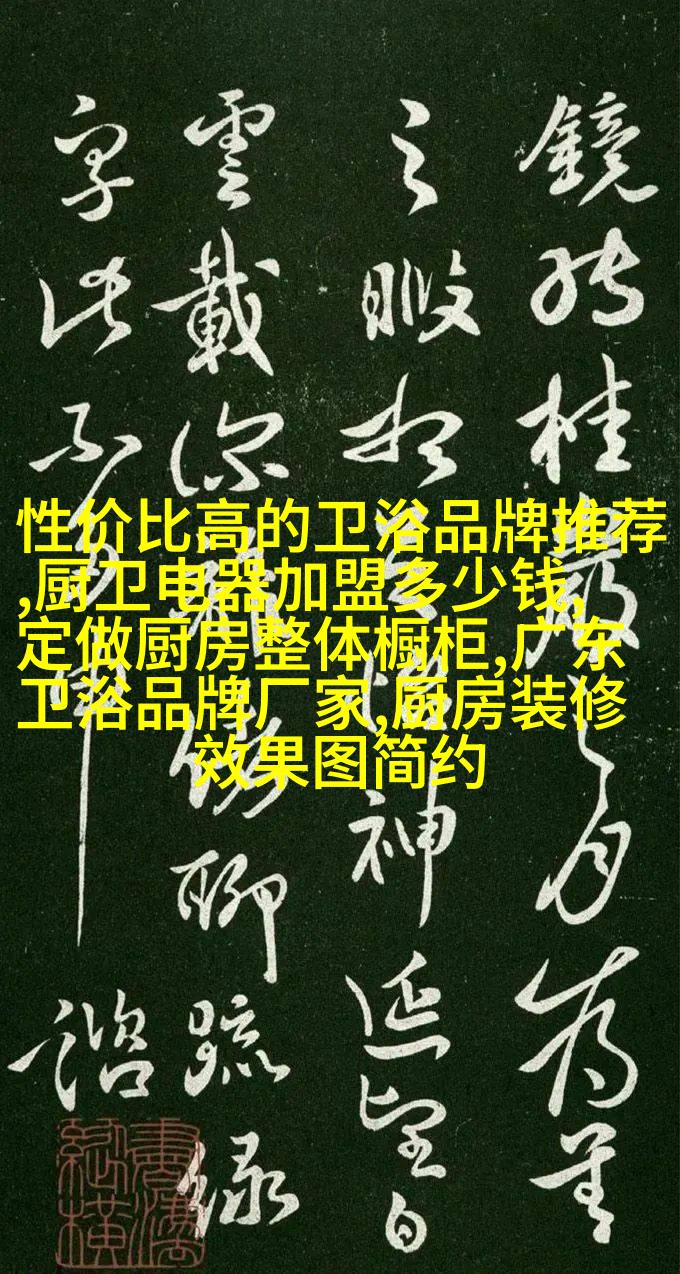 性价比高的卫浴品牌推荐
,厨卫电器加盟多少钱,
定做厨房整体橱柜,广东
卫浴品牌厂家,厨房装修
效果图简约
鏡转桂月为
之暇神延望白
雲載深聊疏缘
字此不